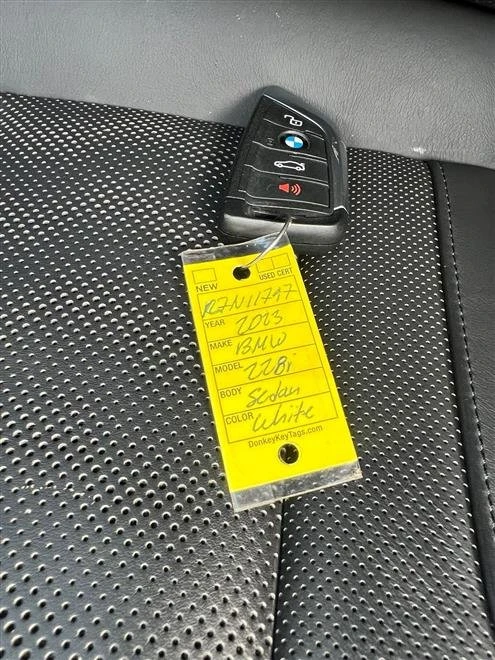 BMW
NEW USED CERT
R7N11797
YEAR 2023
MAKE BMW
MODEL 228i
BODY Sedan
COLOR White
DonkeyKeyTags.com